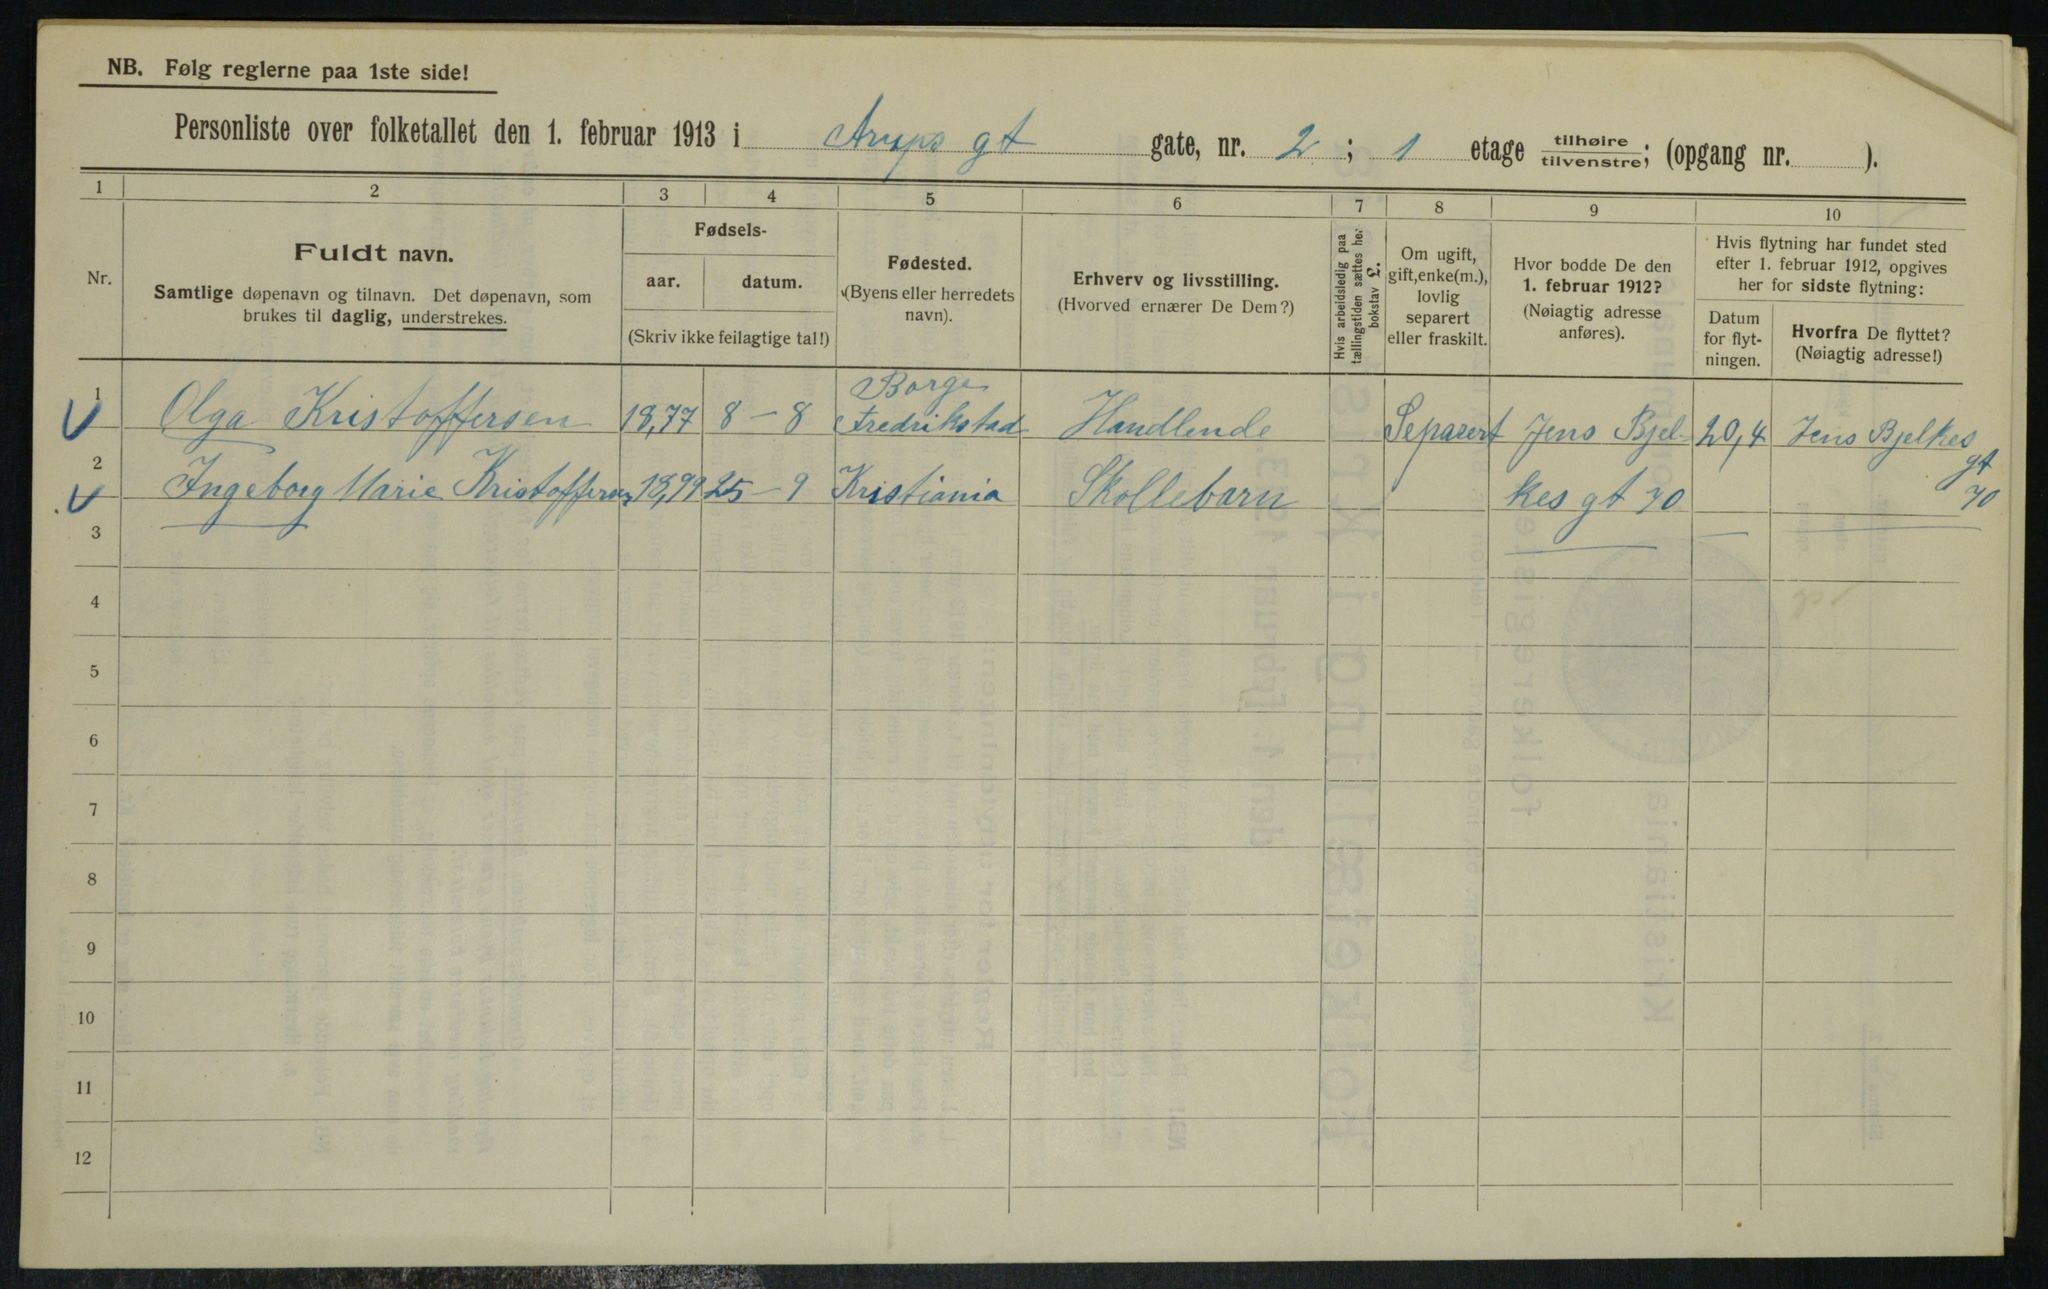 NB. Følg reglerne paa 1ste side!
Personliste over folketallet den 1. februar 1913 i Arups gt gate, nr. 2; 1 etage tilhøire/tilvenstre; (opgang nr. ).
1 2 3 4 5 6 7 8 9 10
Nr.
Fuldt navn.
Samtlige døpenavn og tilnavn. Det døpenavn, som
brukes til daglig, understrekes.
Fødsels-
aar. datum.
(Skriv ikke feilagtige tal!)
Fødested.
(Byens eller herredets
navn).
Erhverv og livsstilling.
(Hvorved ernærer De Dem?)
Hvis arbeidsledig paa
tællingstiden sættes her
bokstav L.
Om ugift,
gift, enke(m.),
lovlig
separert
eller fraskilt.
Hvor bodde De den
1. februar 1912?
(Nøiagtig adresse
anføres).
Hvis flytning har fundet sted
efter 1. februar 1912, opgives
her for sidste flytning:
Datum
for flyt-
ningen.
Hvorfra De flyttet?
(Nøiagtig adresse!)
Borge
1 Olga Kristoffersen 18,77 8 – 8 Fredrikstad Handlende Separert Jens Bjel- 20,4 Jens Bjelkes
gt
2 Ingeborg Marie Kristoffersen 18,99 25 – 9 Kristiania Skollebarn kes gt 70 70
3
4
5
6
7
8
9
10
11
12